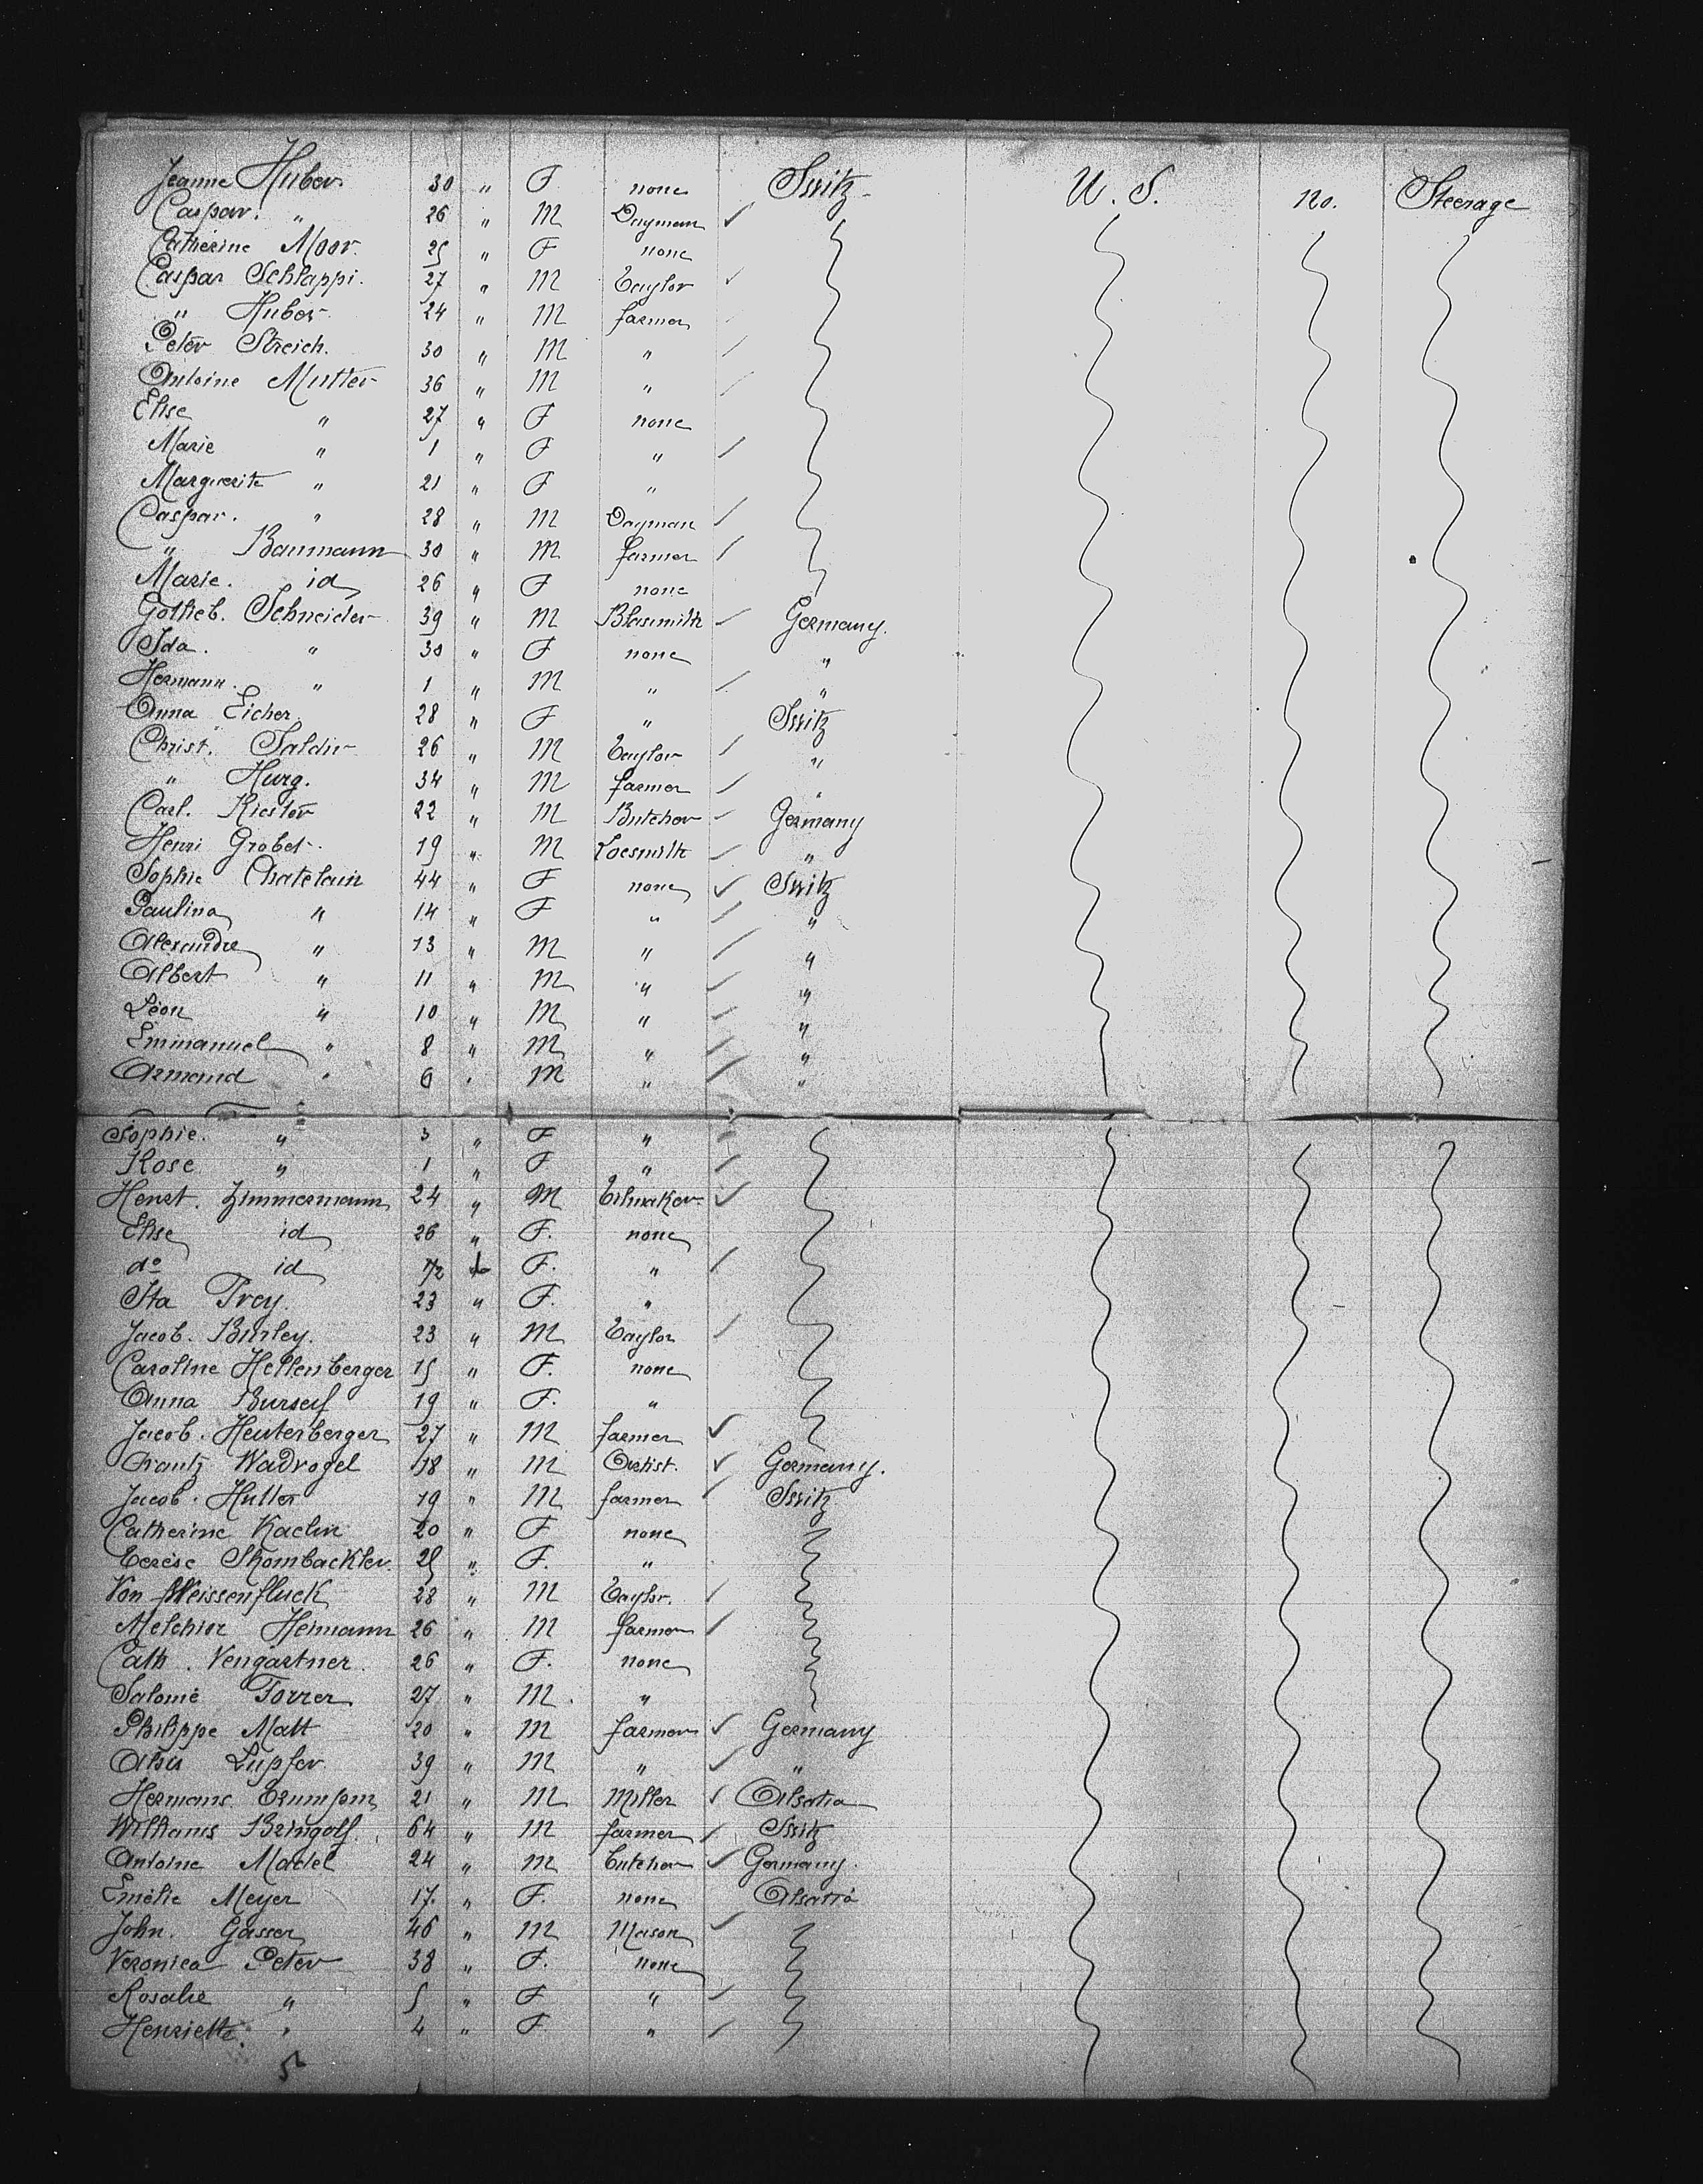 Jeanne Huber. 30 " F none Switz- U. S. no. Steerage
Caspar. " 26 " M Dayman ✓
Catherine Moor. 25 " F none
Caspar Schlappi. 27 " M Taylor ✓
" Huber 24 " M farmer
Peter Streich. 30 " M "
Antoine Mutter 36 " M "
Elise " 27 " F none
Marie " 1 " F " ✓
Marguerite " 21 " F "
Caspar. " 28 " M Dayman ✓
" Baumann 30 " M farmer ✓
Marie. id 26 " F none
Gotlieb. Schneider 39 " M Blasmith ✓ Germany.
Ida. " 30 " F none "
Hermann. " 1 " M " ✓ "
Anna Eicher 28 " F " Switz
Christ. Saldin 26 " M Taylor ✓ "
" Hurg. 34 " M farmer ✓ "
Carl. Riester 22 " M Butcher ✓ Germany
Henri Grobet. 19 " M Locsmith ✓ "
Sophie Chatelain 44 " F none ✓ Switz
Paulina " 14 " F " ✓ "
Alexandre " 13 " M " ✓ "
Albert " 11 " M " ✓ "
Léon " 10 " M " ✓ "
Emmanuel " 8 " M " ✓ "
Armand " 6 " M " ✓ "
Sophie. " 3 " F " ✓
Rose " 1 " F " ✓
Henst. Zimmermann 24 " M ✓
Elise id 26 " F. none
do id 1/2 F. " ✓
Ita Frey. 23 " F. "
Jacob. Burley. 23 " M Taylor ✓
Caroline Hellenberger 15 " F. none
Anna 19 " F. "
Jacob. Heuterberger 27 " M farmer ✓
Frantz Wadvogel 18 " M Artist. ✓ Germany.
Jacob. Hutter 19 " M farmer ✓ Switz
Catherine Kaelin 20 " F none
Terèse Shombackler. 25 " F. "
Von Weissenfluck 28 " M Taylor. ✓
Melchior Heimann 26 " M farmer ✓
Cath. Vengartner. 26 " F. none
Salomé Forrer 27 " M. "
Philippe Matt 20 " M farmer ✓ Germany
Lupfer. 39 " M " ✓ "
Hermans 21 " M Miller ✓ Alsatia
Williams Bringolf. 64 " M farmer ✓ Switz
Antoine Madel 24 " M butcher ✓ Germany.
Emélie Meyer 17. " F. none Alsatia
John. Gasser 46 " M Mason ✓
Veronica Peter 38 " F. none
Rosalie " 5 " F " ✓
Henriette. " 4 " F " ✓
5